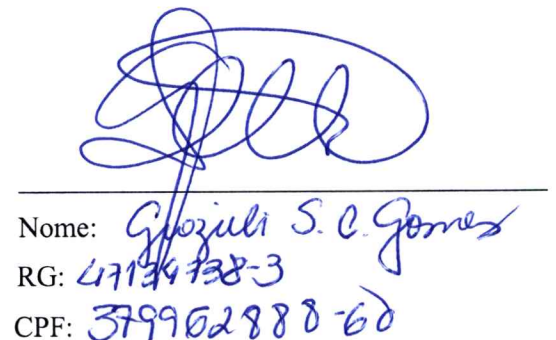 Nome: Giozieli S. C. Gomes
RG: 47134738-3
CPF: 379962888-60